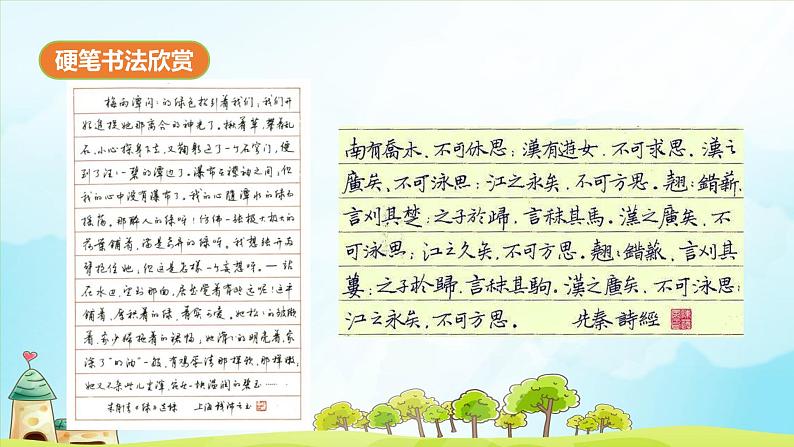 硬笔书法欣赏
梅雨潭闪闪的绿色招引着我们；我们开
始追捉她那离合的神光了。揪着草，攀着乱
石，小心探身下去，又鞠躬过了一个石穹门，便
到了汪汪一碧的潭边了。瀑布在襟袖之间；但
我的心中没有瀑布了。我的心随潭水的绿而
摇荡。那醉人的绿呀！仿佛一张极大极大的
荷叶铺着，满是奇异的绿呀。我想张开两
臂抱住她；但这是怎样一个妄想呀。— 站
在水边，望到那面，居然觉着有些远呢！这平
铺着，厚积着的绿，着实可爱。她松松的皱缬
着，象少妇拖着的裙幅；她滑滑的明亮着，象
涂了“明油”一般，有鸡蛋清那样软，那样嫩；
她又不杂些儿尘滓，宛然一块温润的碧玉……
朱自清《绿》选录 上海钱沛云书
南有喬木，不可休思；漢有遊女，不可求思。漢之
廣矣，不可泳思；江之永矣，不可方思。翹翹錯薪，
言刈其楚；之子於歸，言秣其馬。漢之廣矣，不
可泳思；江之久矣，不可方思。翹翹錯薪，言刈其
蔞；之子於歸，言秣其駒。漢之廣矣，不可泳思；
江之永矣，不可方思。 先秦詩經